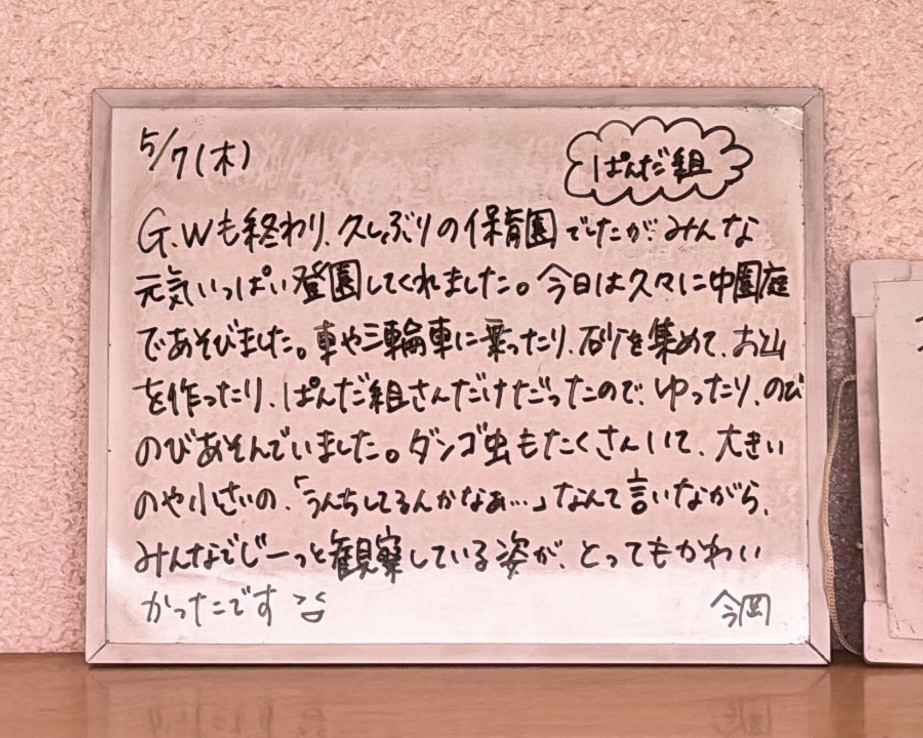 5/7(木)
ぱんだ組
G.Wも終わり、久しぶりの保育園でしたが、みんな
元気いっぱい登園してくれました。今日は久々に中園庭
であそびました。車や三輪車に乗ったり、砂を集めて、お山
を作ったり、ぱんだ組さんだけだったので、ゆったり、のび
のびあそんでいました。ダンゴ虫もたくさんいて、大きい
のや小さいの、「うんちしてるんかなぁ…」なんて言いながら、
みんなでじーっと観察している姿が、とってもかわい
かったです
今岡